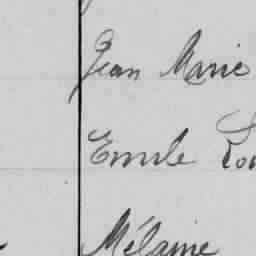 Jean Marie
Emile Lou
Mélanie